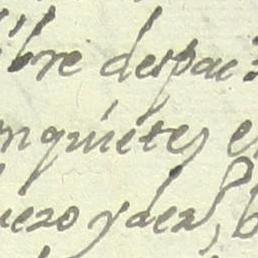 ibre despac
nquietes e
uezo y dez